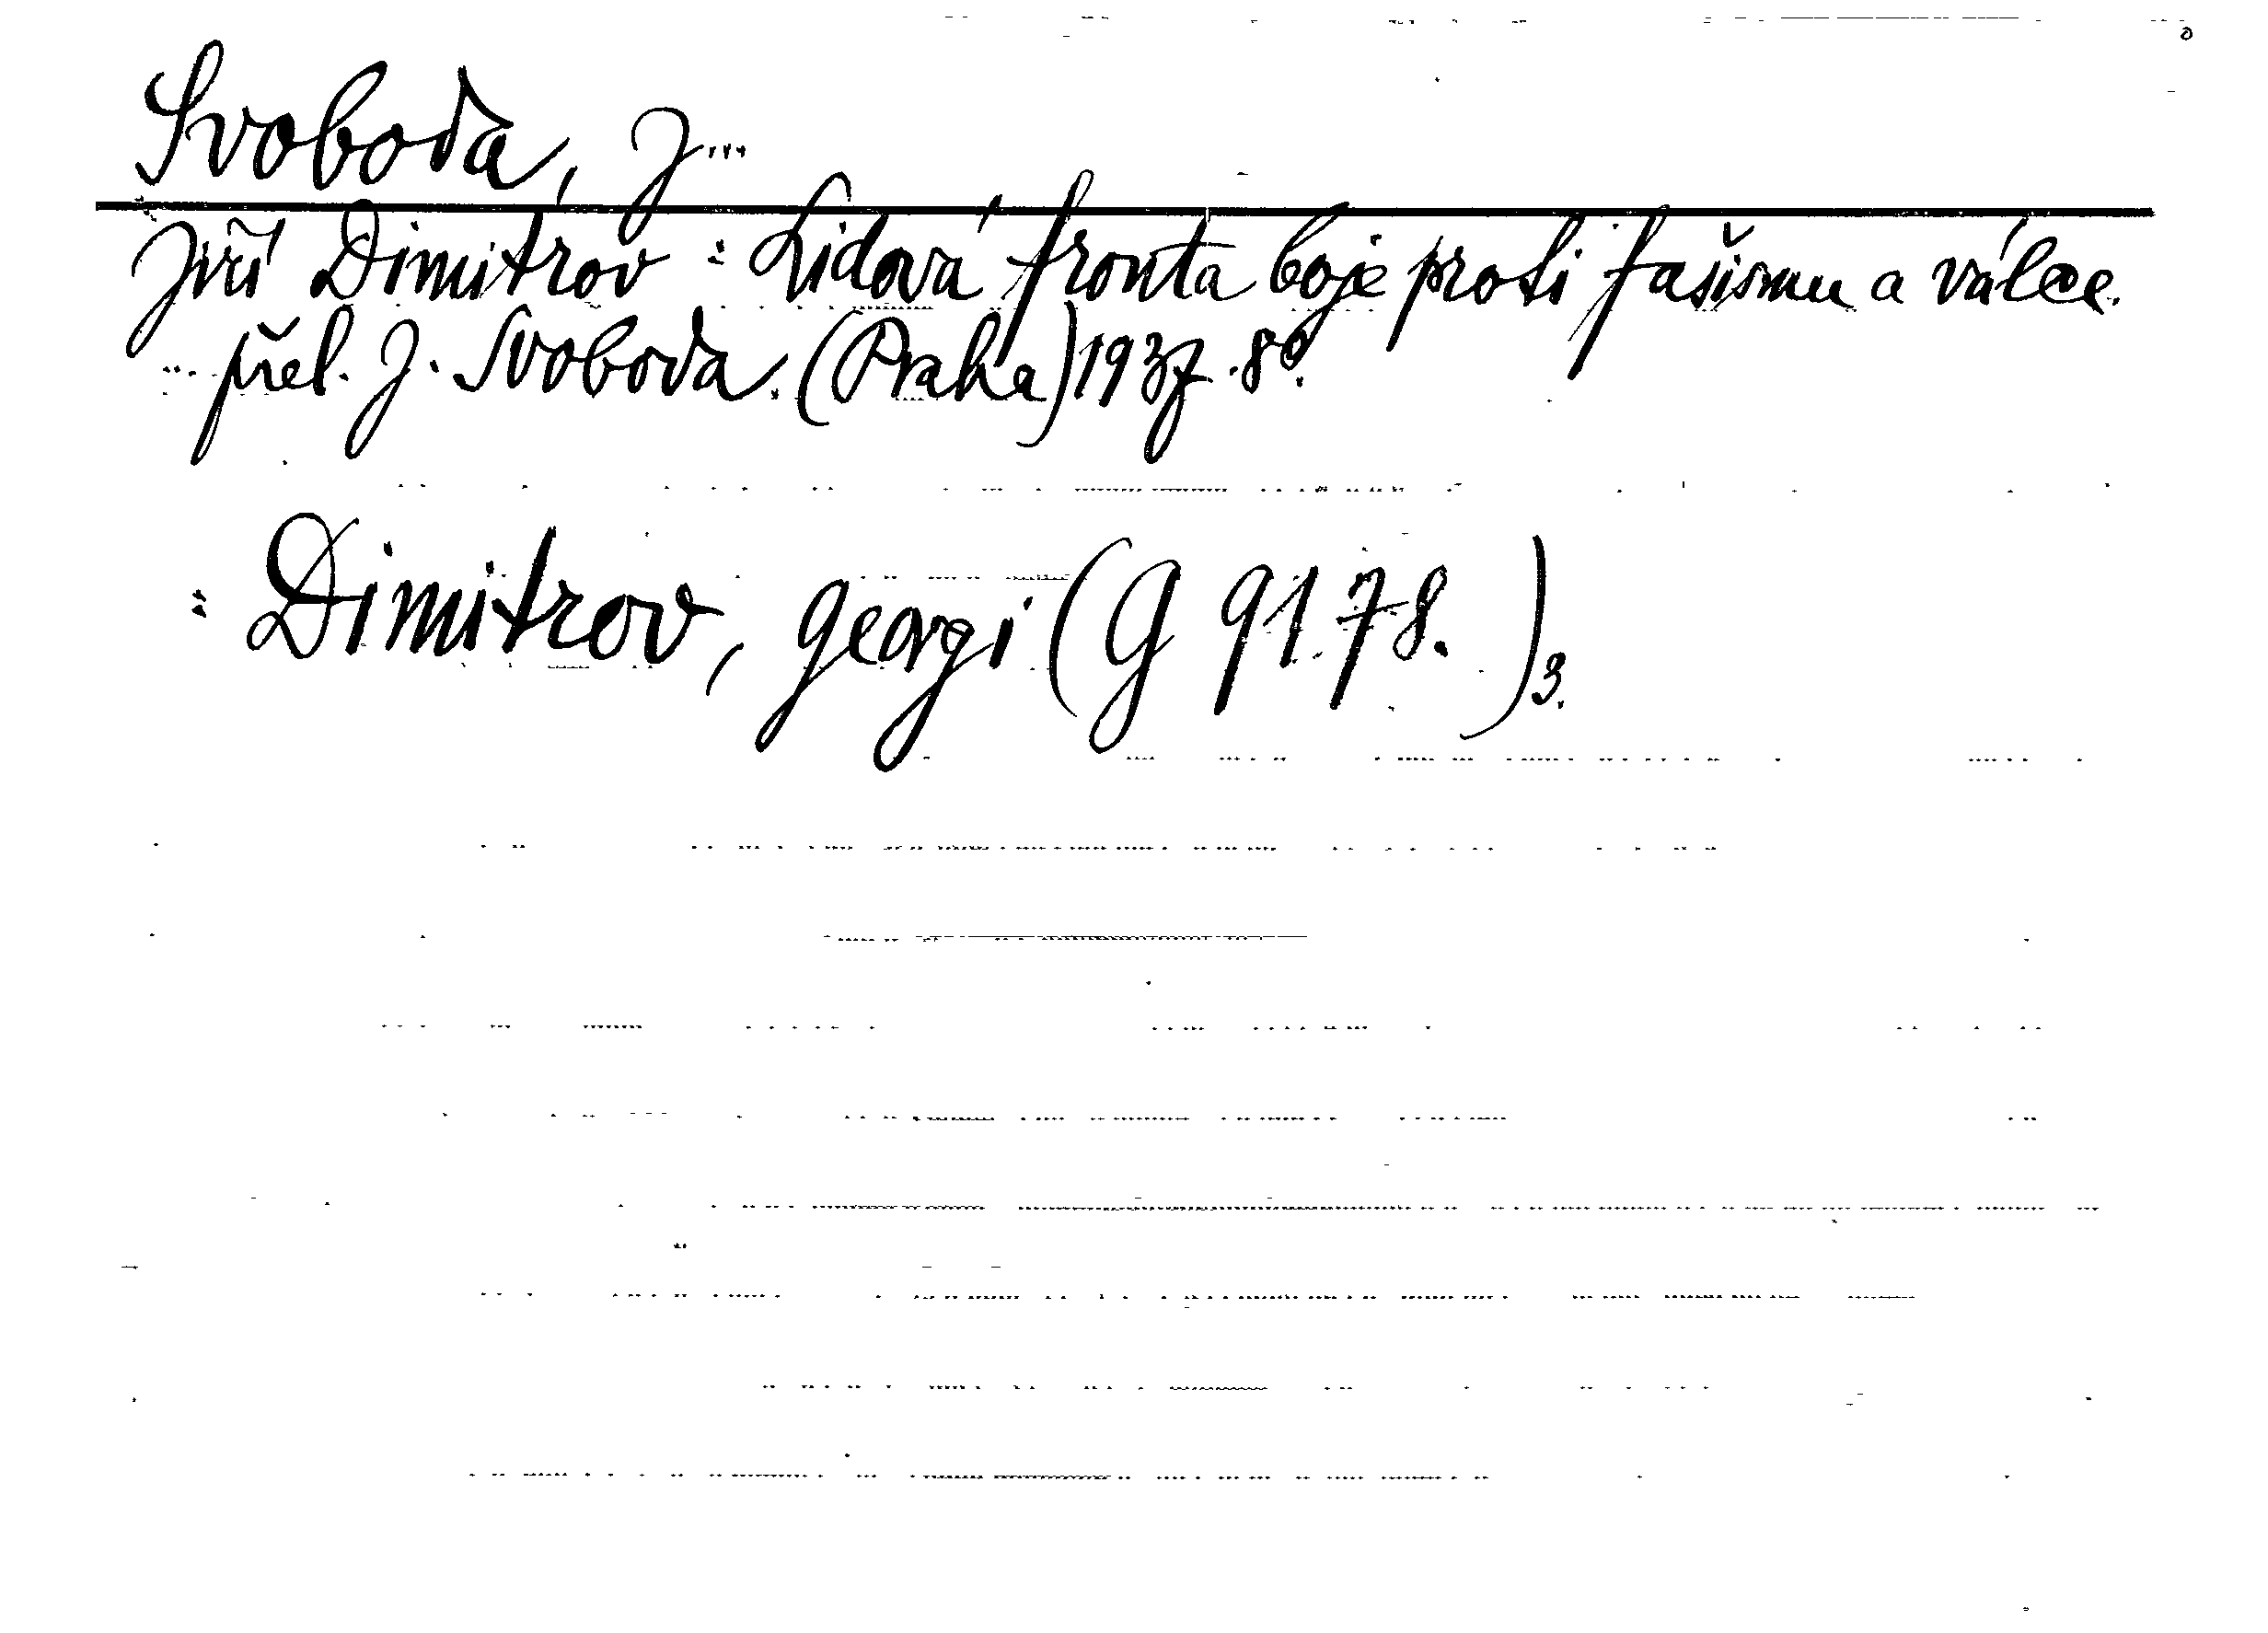 Svoboda, J...
Jiří Dimitrov : Lidová fronta boje proti fašismu a válce.
... přel. J. Svoboda. (Praha) 1937. 8°.
: Dimitrov, Georgi (G 9178. )3.